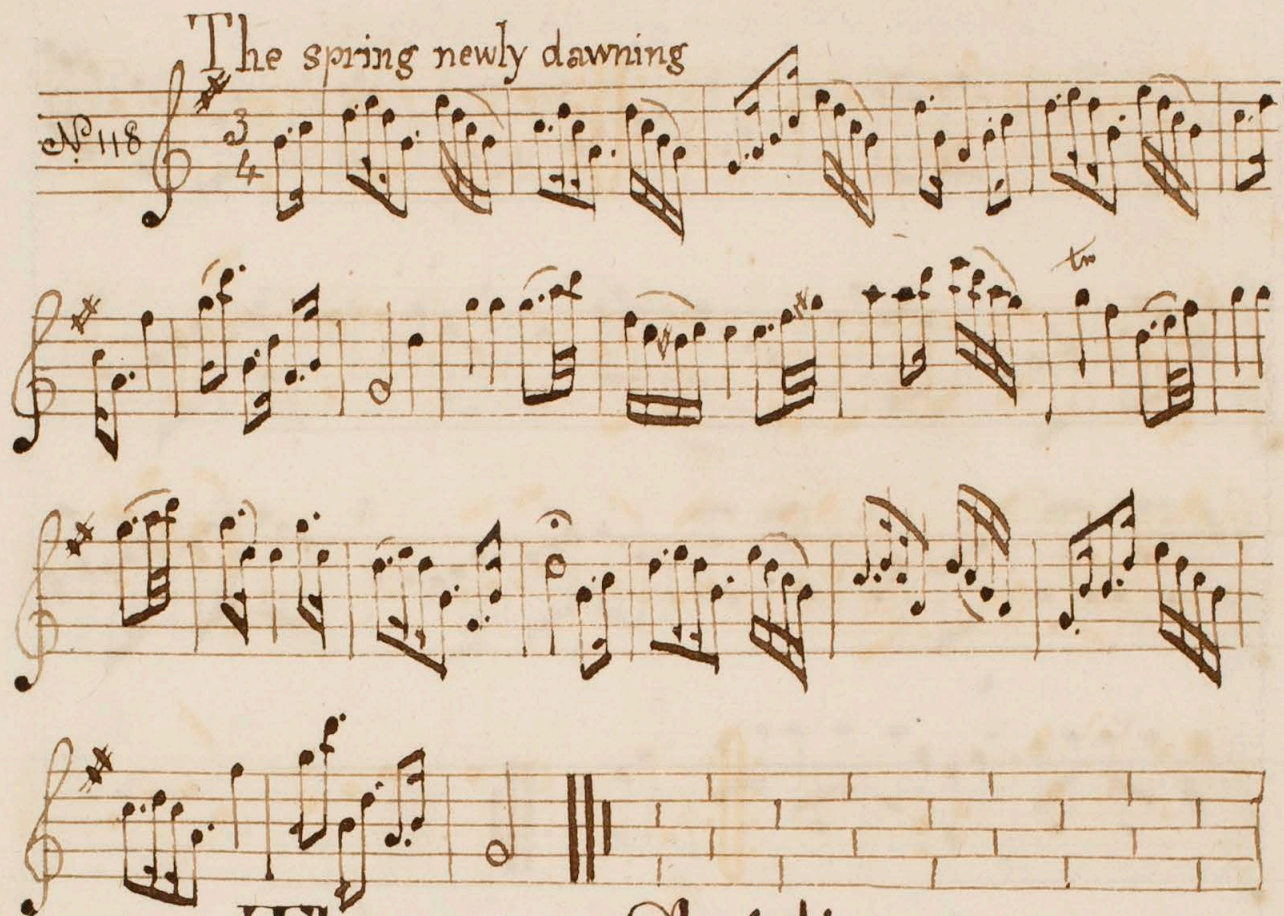 The spring newly dawning
No. 118
3
4
tr